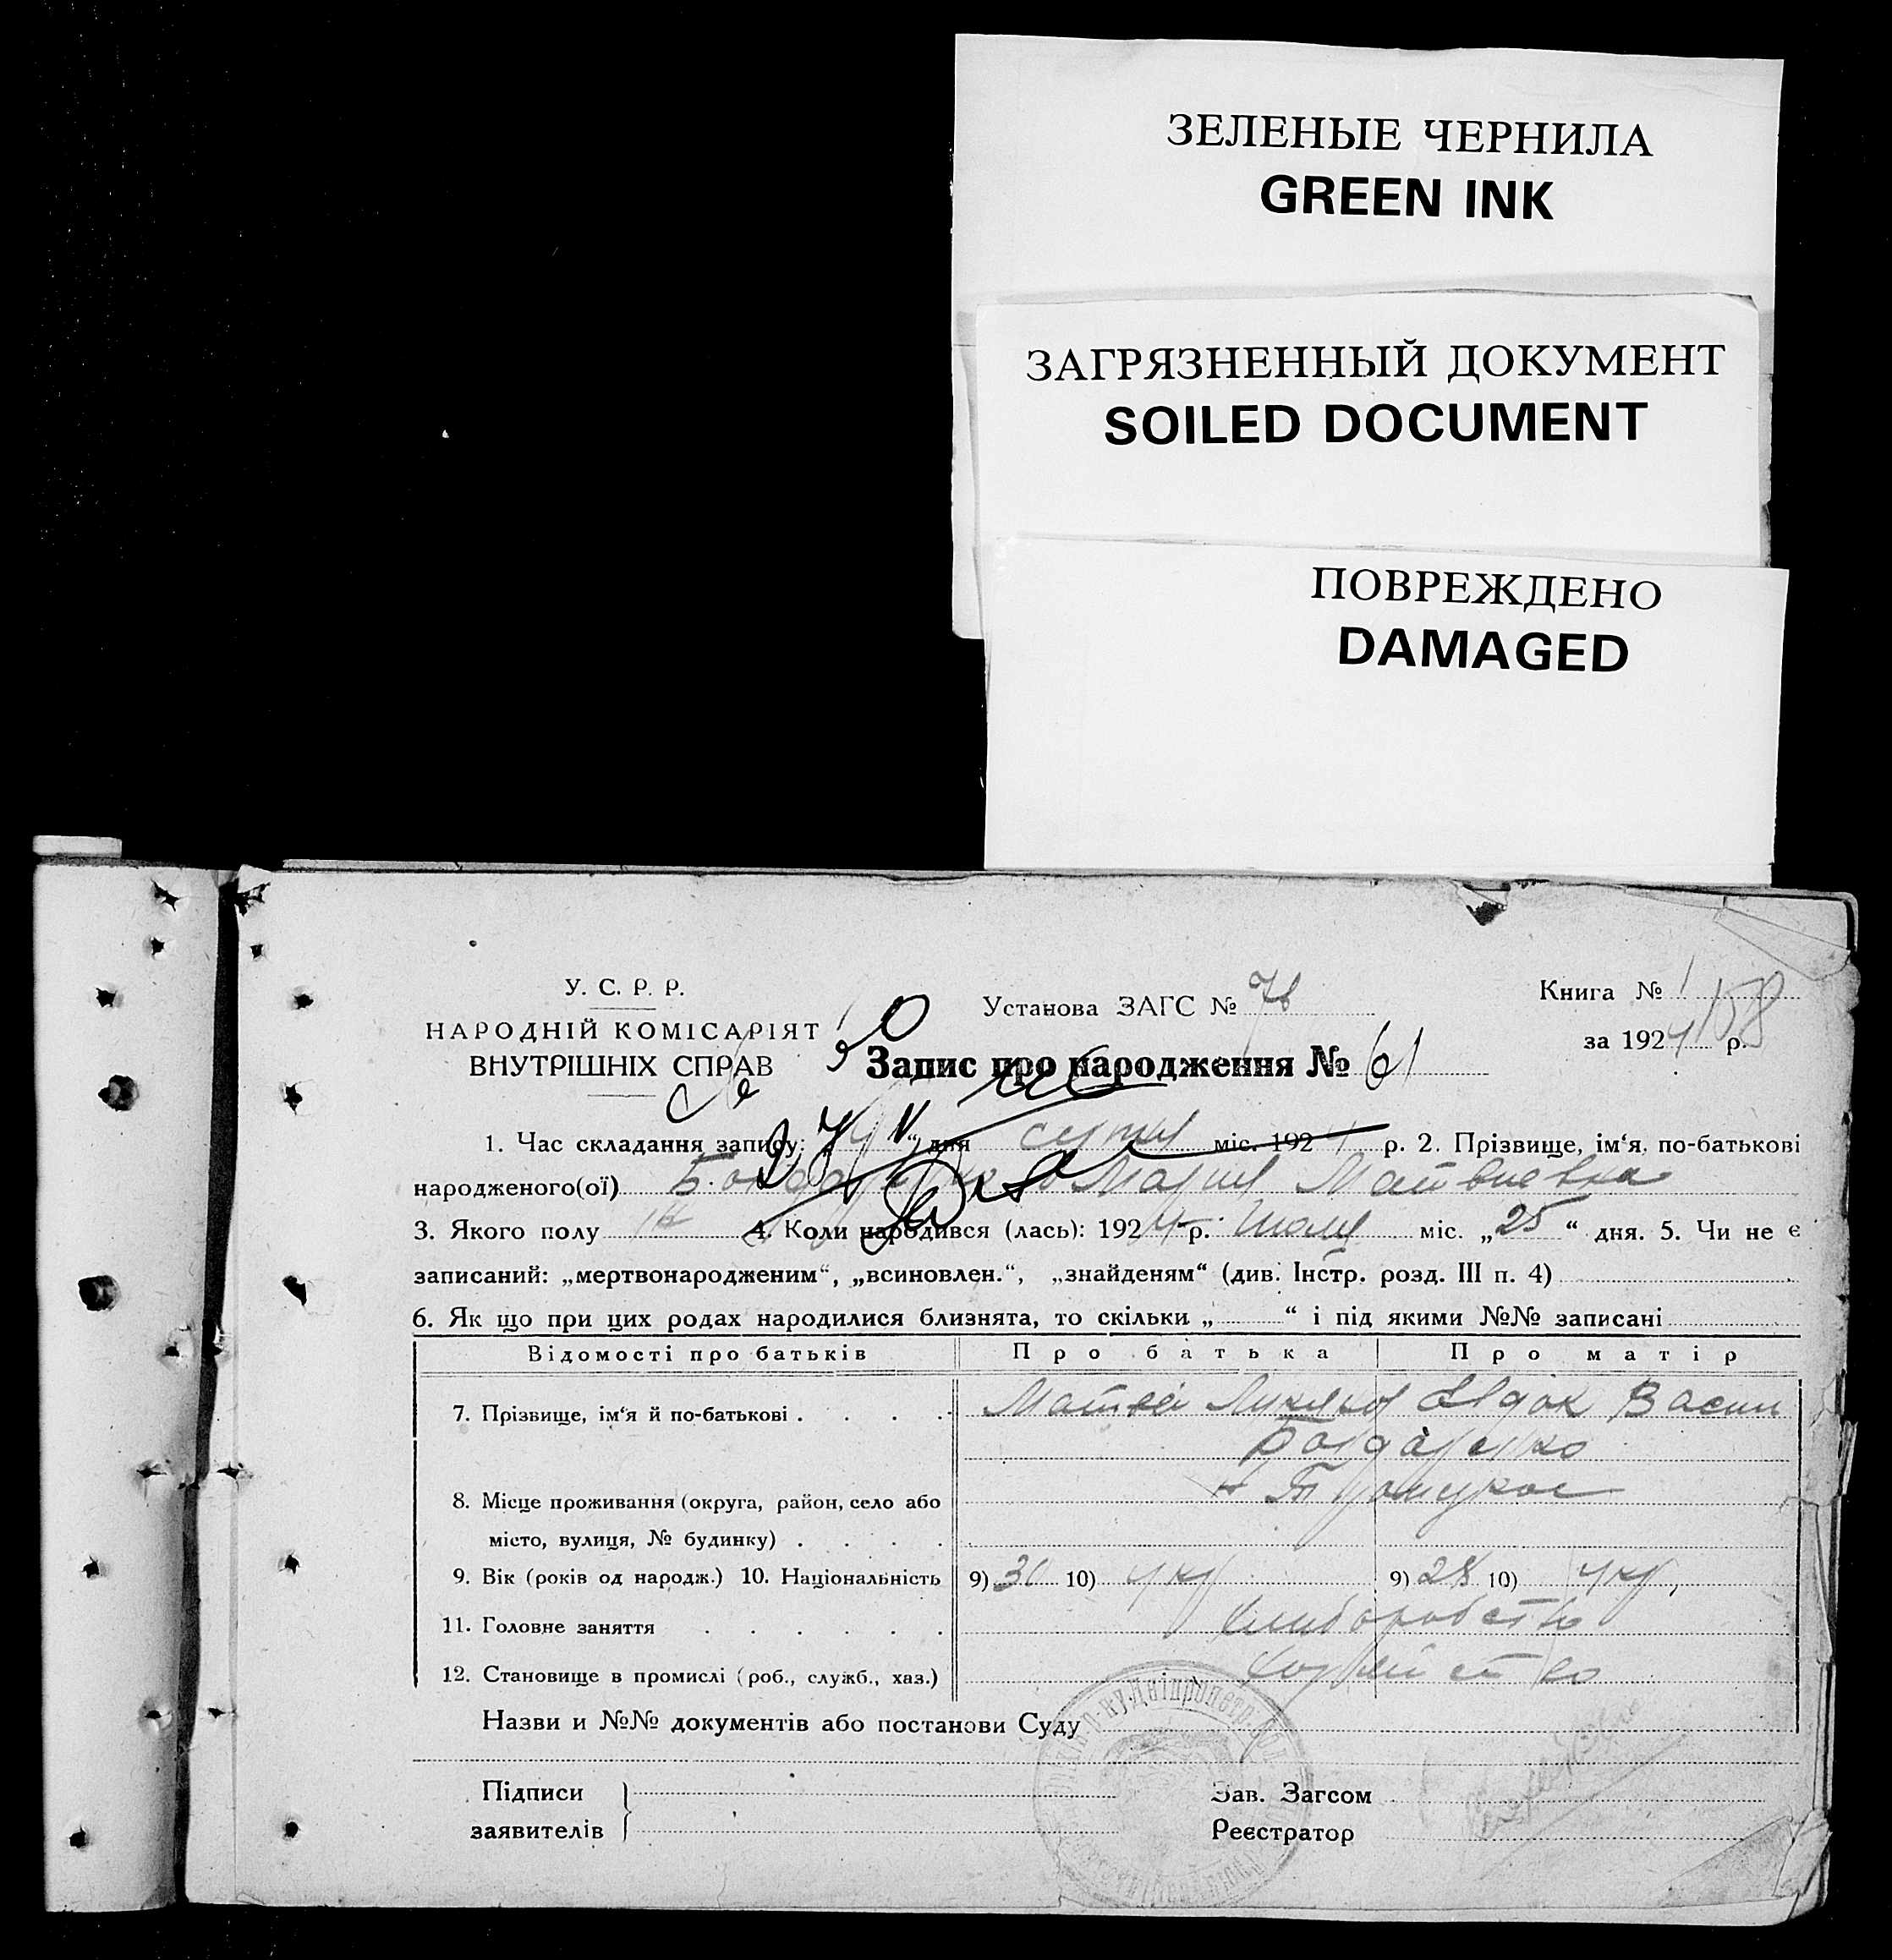 ЗЕЛЕНЫЕ ЧЕРНИЛА
GREEN INK
ЗАГРЯЗНЕННЫЙ ДОКУМЕНТ
SOILED DOCUMENT
ПОВРЕЖДЕНО
DAMAGED
У. С. Р. Р.
НАРОДНІЙ КОМІСАРІЯТ
ВНУТРІШНІХ СПРАВ
Установа ЗАГС №
Книга № 1
158
за 1924 р.
Запис про народження № 61
1. Час складання запису: „ “ дня міс. 1924 р. 2. Прізвище, ім‘я, по-батькові
народженого(ої) Бондаренко Мария Матвиевна
3. Якого полу 4. Коли народився (лась): 1924 р. Июля міс. „25“ дня. 5. Чи не є
записаний: „мертвонародженим“, „всиновлен.“, „знайденям“ (див. Інстр. розд. III п. 4)
6. Як що при цих родах народилися близнята, то скільки „ “ і під якими №№ записані
Відомості про батьків Про батька Про матір
7. Прізвище, ім‘я й по-батькові Матвей Евдок Васил
Бондаренко
8. Місце проживання (округа, район, село або
місто, вулиця, № будинку)
9. Вік (років од народж.) 10. Національність 9) 30 10) укр 9) 28 10) укр,
11. Головне заняття хлиборобство
12. Становище в промислі (роб., служб., хаз.)
Назви и №№ документів або постанови Суду
Підписи
заявителів
Зав. Загсом
Реєстратор